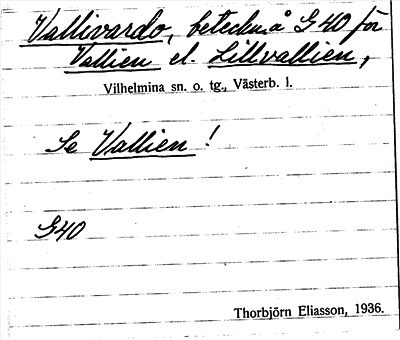 Vallivardo, beteckn. å G40 för
Vallien el. Lillvallien,
Vilhelmina sn. o. tg., Västerb. l.
Se Vallien!
G40
Thorbjörn Eliasson, 1936.